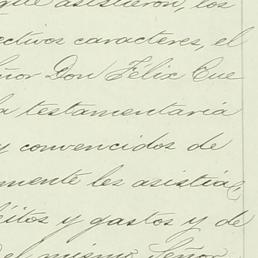 que asistieron, los
ectivos caracteres, el
eñor Don Félix Cue
la testamentaria
y convencidos de
mente les asistia
éitos y gastos y de
el mismo Señor